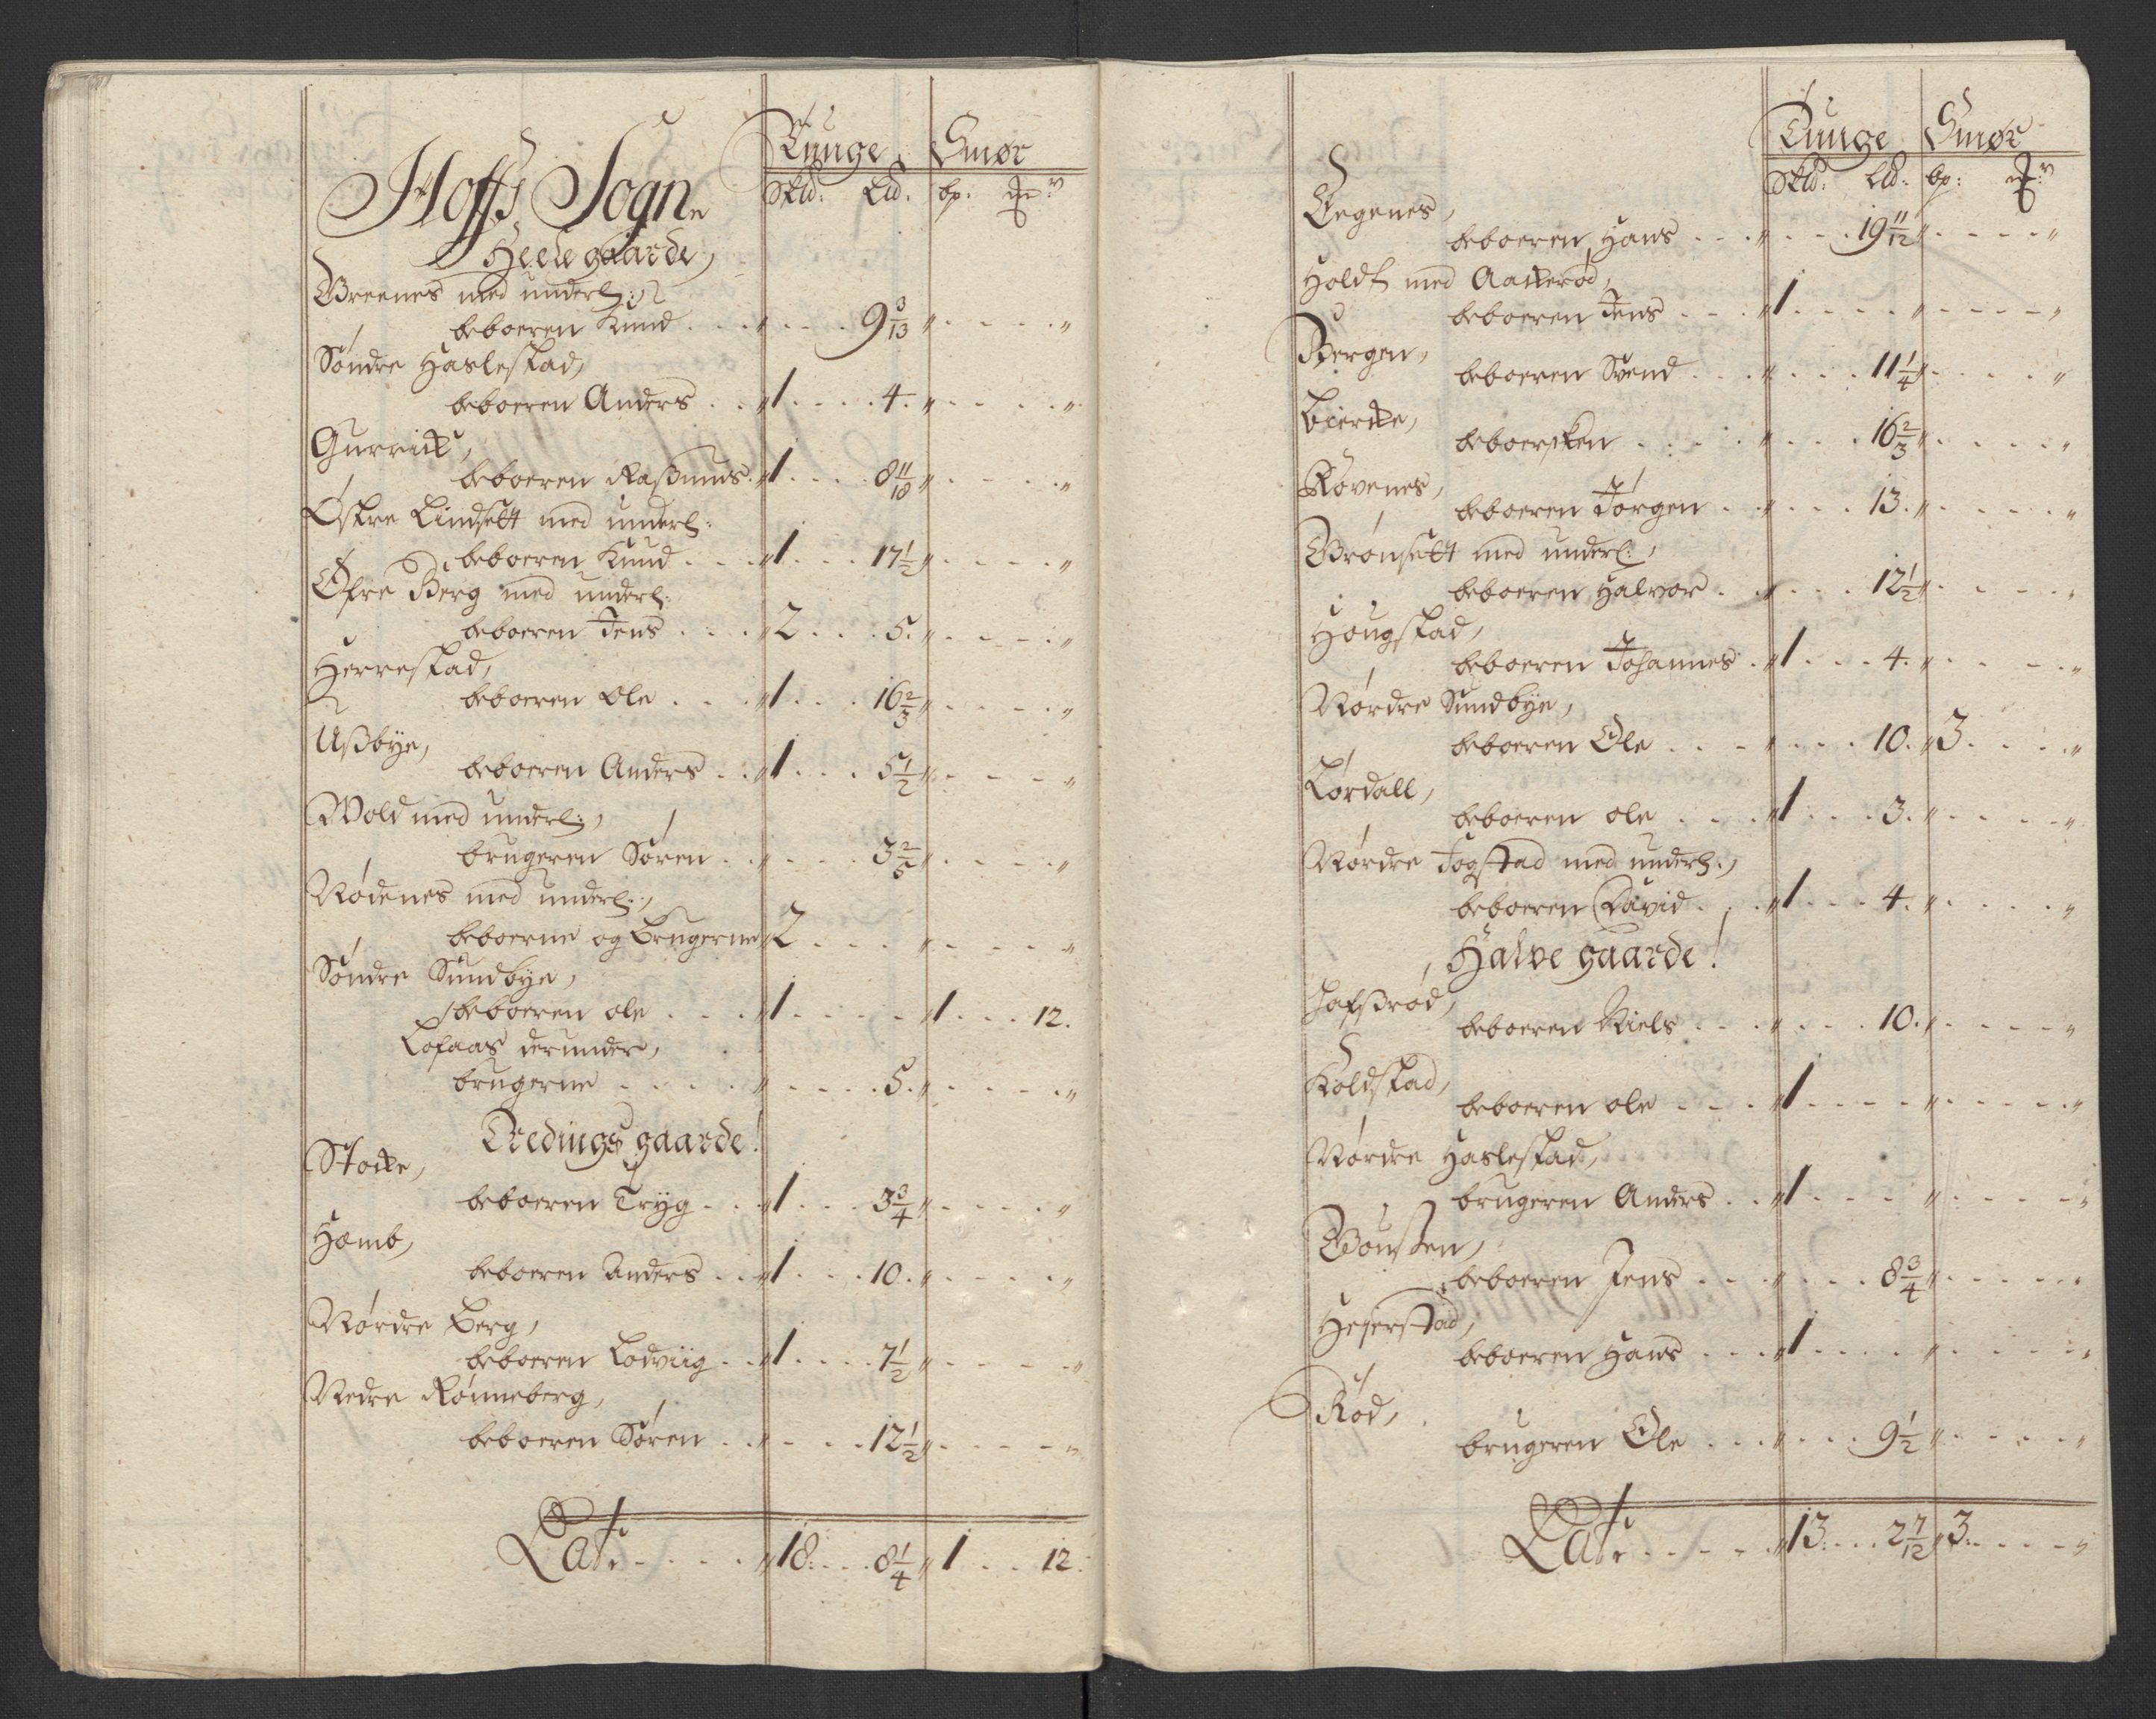 Hoffs Sogn
Tunge Smør
Skld: Lld: bp: mrk
Heele gaarde,
Greenes med underl:
beboeren Knud . . . 9 3/13
Søndre Haslestad,
beboeren Anders . . 1 . . . . 4.
Gurrick,
beboeren Rasmuus 1 . . . . 8 11/18
Østre Lindsett med underl:
beboeren Knud . . . 1 . . . 17 1/2
Øfre Berg med underl:
beboeren Jens . . . 2 . . . 5.
Herrestad,
beboeren Ole . . . 1 . . . 16 2/3
Ussbye,
beboeren Anders . . 1 . . . 5 1/2
Wold med underl:,
brugeren Søren . . . . . 3 2/5
Rødenes med underl:,
beboerne og Brugerne 2 . . .
Søndre Sundbye,
beboeren ole . . . 1 . . . . 1 . . . 12.
Lofaas derunder,
brugerne . . . . . . . . 5.
Ødedings gaarde!
Stocke,
beboeren Tryg . . . 1 . . . 3 3/4
Hæmb,
beboeren Anders . . 1 . . . 10.
Nørdre Berg,
beboeren Lodviig . . 1 . . . . 7 1/2
Nedre Rønneberg,
beboeren Søren . . . . . . 12 1/2
Lat: . . . . 18. . . . 8 1/4 1 . . 12.
Tunge Smør
Skld: Lld: bp: mrk
Tegenes,
beboeren Hans . . . . . . 19 11/12
Holdt med Aaserød,
beboeren Jens . . . 1 . . . .
Bergen,
beboeren Svend . . . . . . 11 1/4
Biercke,
beboersken . . . . . . . 16 2/3
Røvenes,
beboeren Jørgen . . . . . 13.
Grønsett med underl:,
beboeren Halvor . . . . . 12 1/2
Hougstad,
beboeren Johannes . 1 . . . 4.
Nørdre Sundbye,
beboeren Ole . . . . . . 10. 3. . . .
Lørdall,
beboeren ole . . . 1 . . . 3.
Nørdre Fogstad med underl:,
beboeren David . . . 1 . . . 4.
Halve gaarde!
Hafssrød,
beboeren Niels . . . . . . 10.
Koldstad,
beboeren ole . . . 1 . . . .
Nørdre Haslestad,
brugeren Anders . . 1 . . .
beboeren Jens . . . . . . 8 3/4
Hejerstad,
beboeren Hans . . . 1 . . . .
Rød,
brugeren Ole . . . . . . 9 1/2
Lat: . . . . . 13. . . . 2 7/12 3. . . .